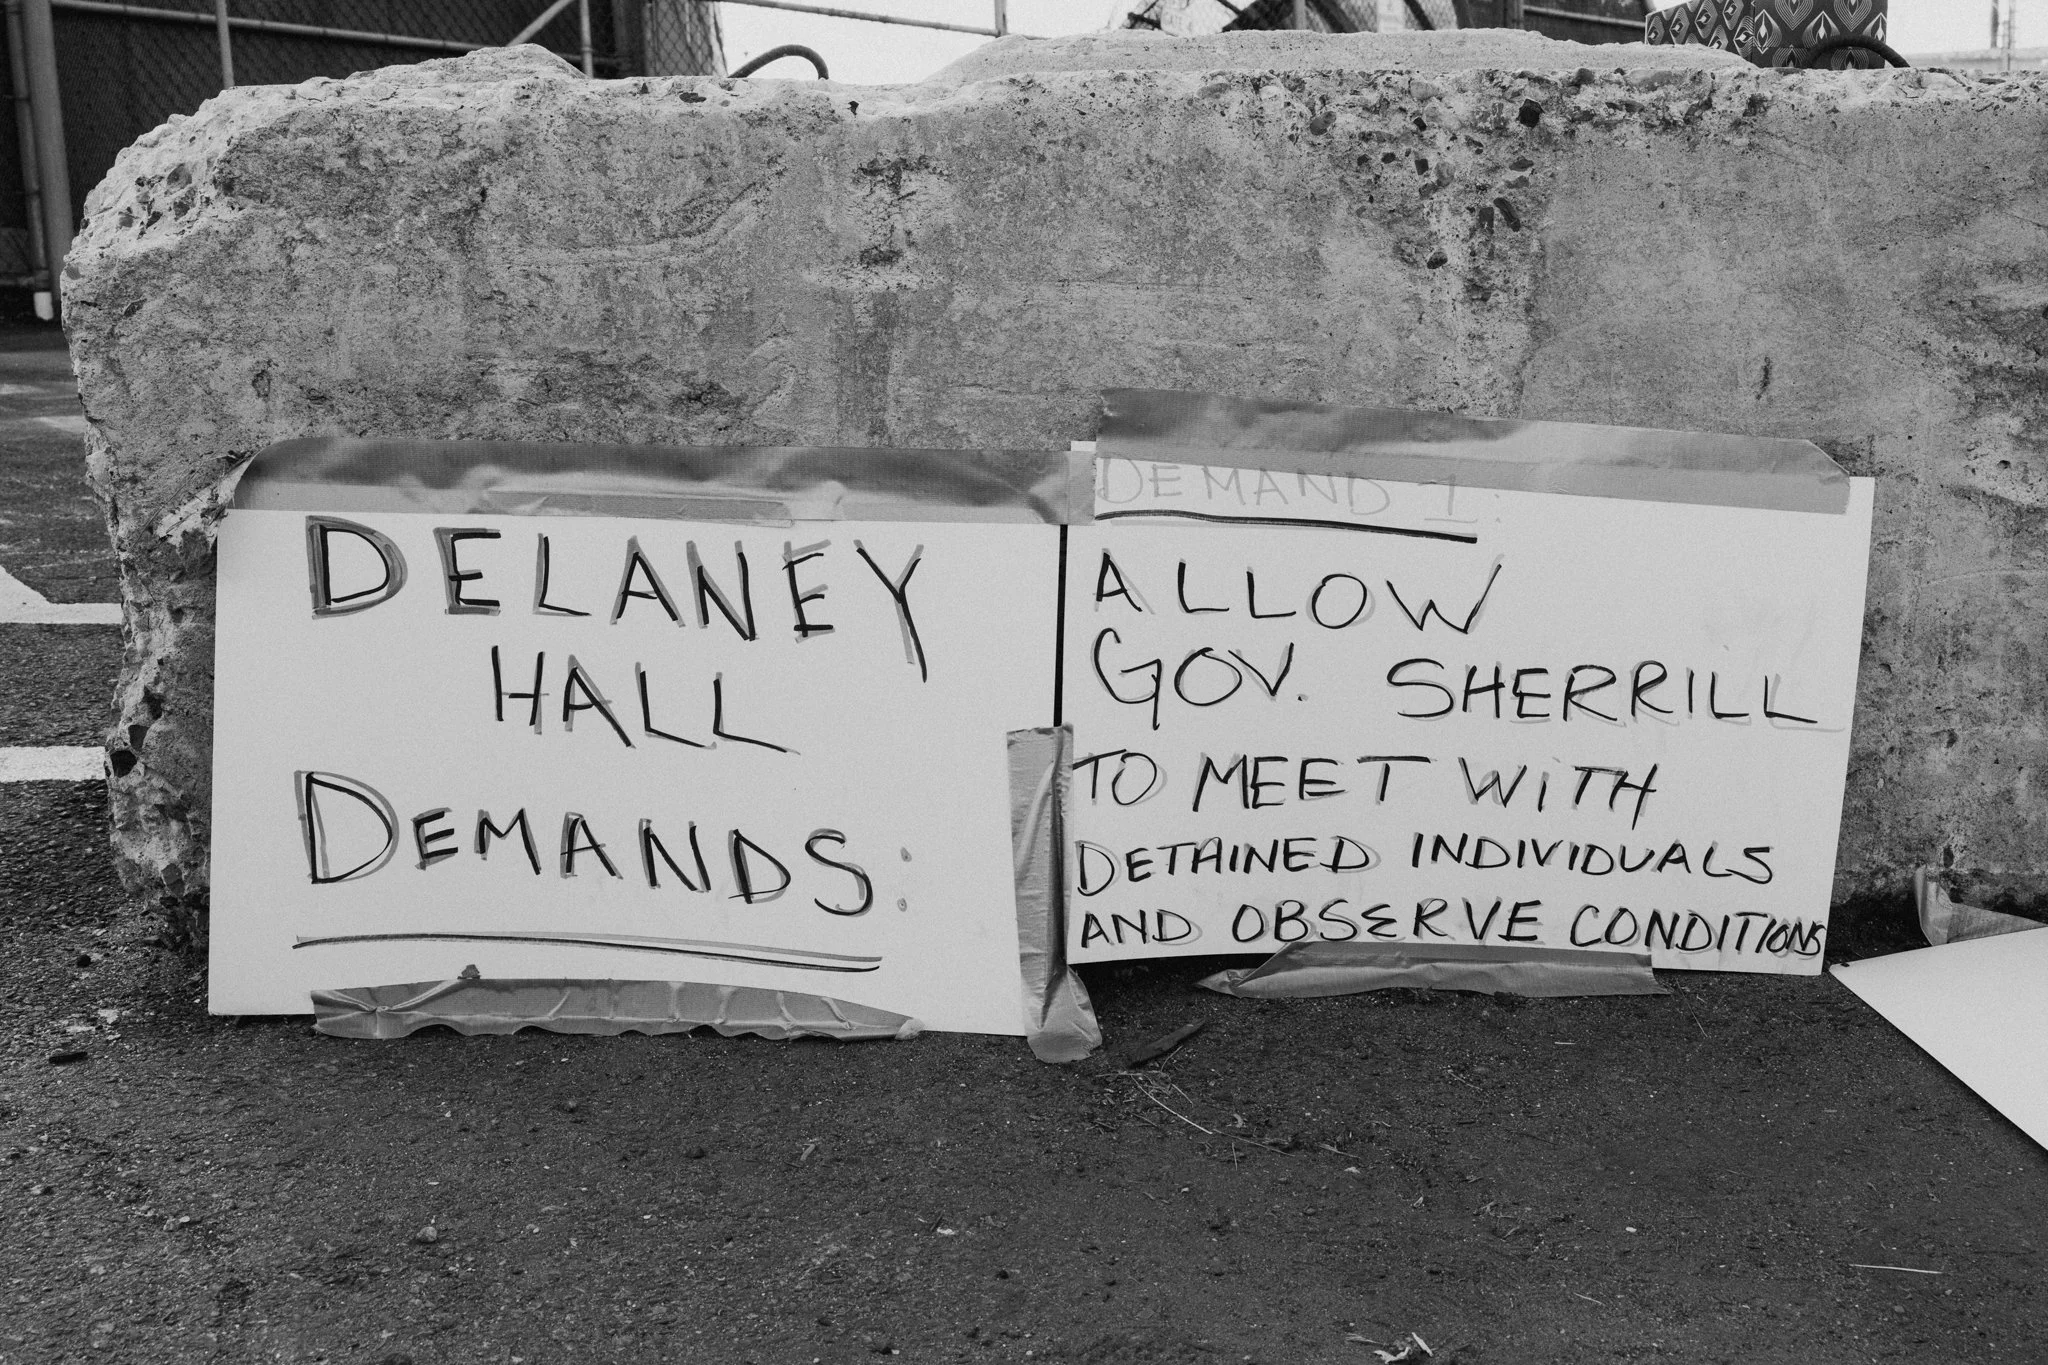 DELANEY
HALL
DEMANDS:
DEMAND 1:
ALLOW
GOV. SHERRILL
TO MEET WiTH
DETAINED INDIVIDUALS
AND OBSERVE CONDITIONS